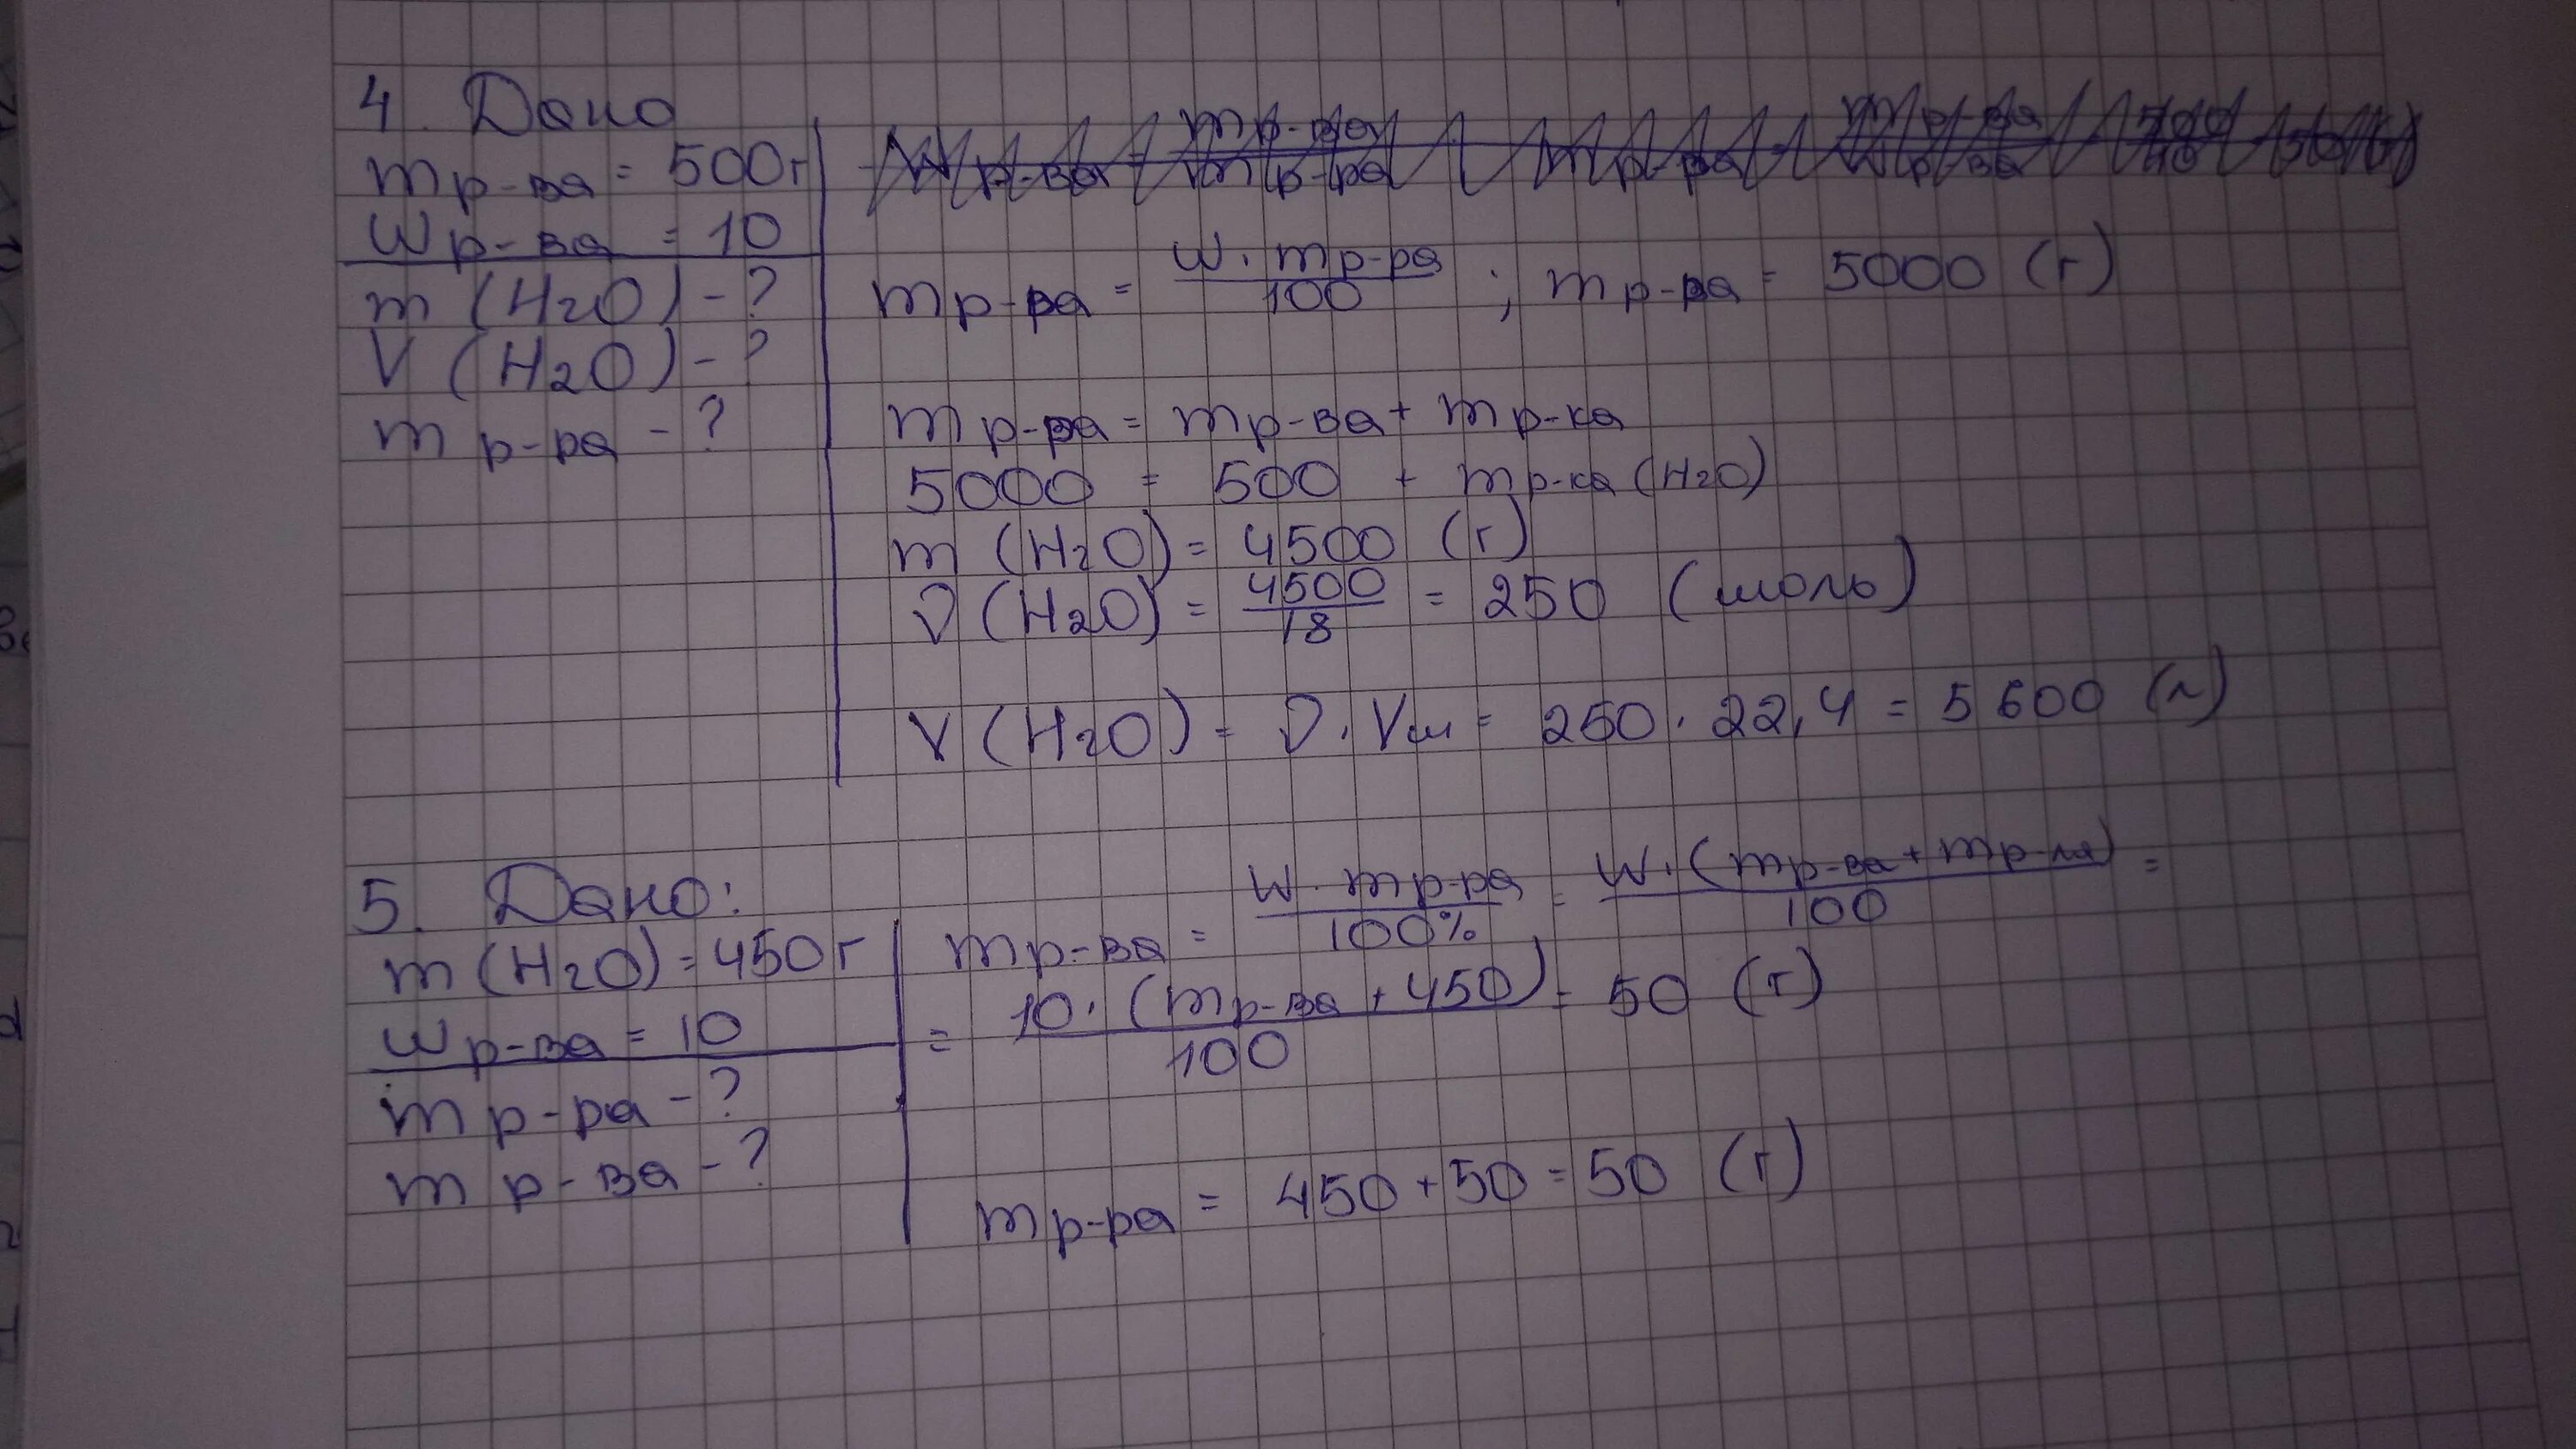 4. Дано
m р-ва = 500г
W р-ва = 10
m (H2O) - ?
V (H2O) - ?
m р-ра - ?
m р-ра = W · m р-ра / 100 ; m р-ра = 5000 (г)
m р-ра = m р-ва + m р-ка
5000 = 500 + m р-ка (H2O)
m (H2O) = 4500 (г)
ν (H2O) = 4500 / 18 = 250 (моль)
V (H2O) = ν · Vм = 250 · 22,4 = 5600 (л)
5. Дано:
m (H2O) = 450 г
W р-ва = 10
m р-ра - ?
m р-ва - ?
m р-ва = W · m р-ра / 100% = W · (m р-ва + m р-ля) / 100 =
= 10 · (m р-ва + 450) / 100 = 50 (г)
m р-ра = 450 + 50 = 50 (г)